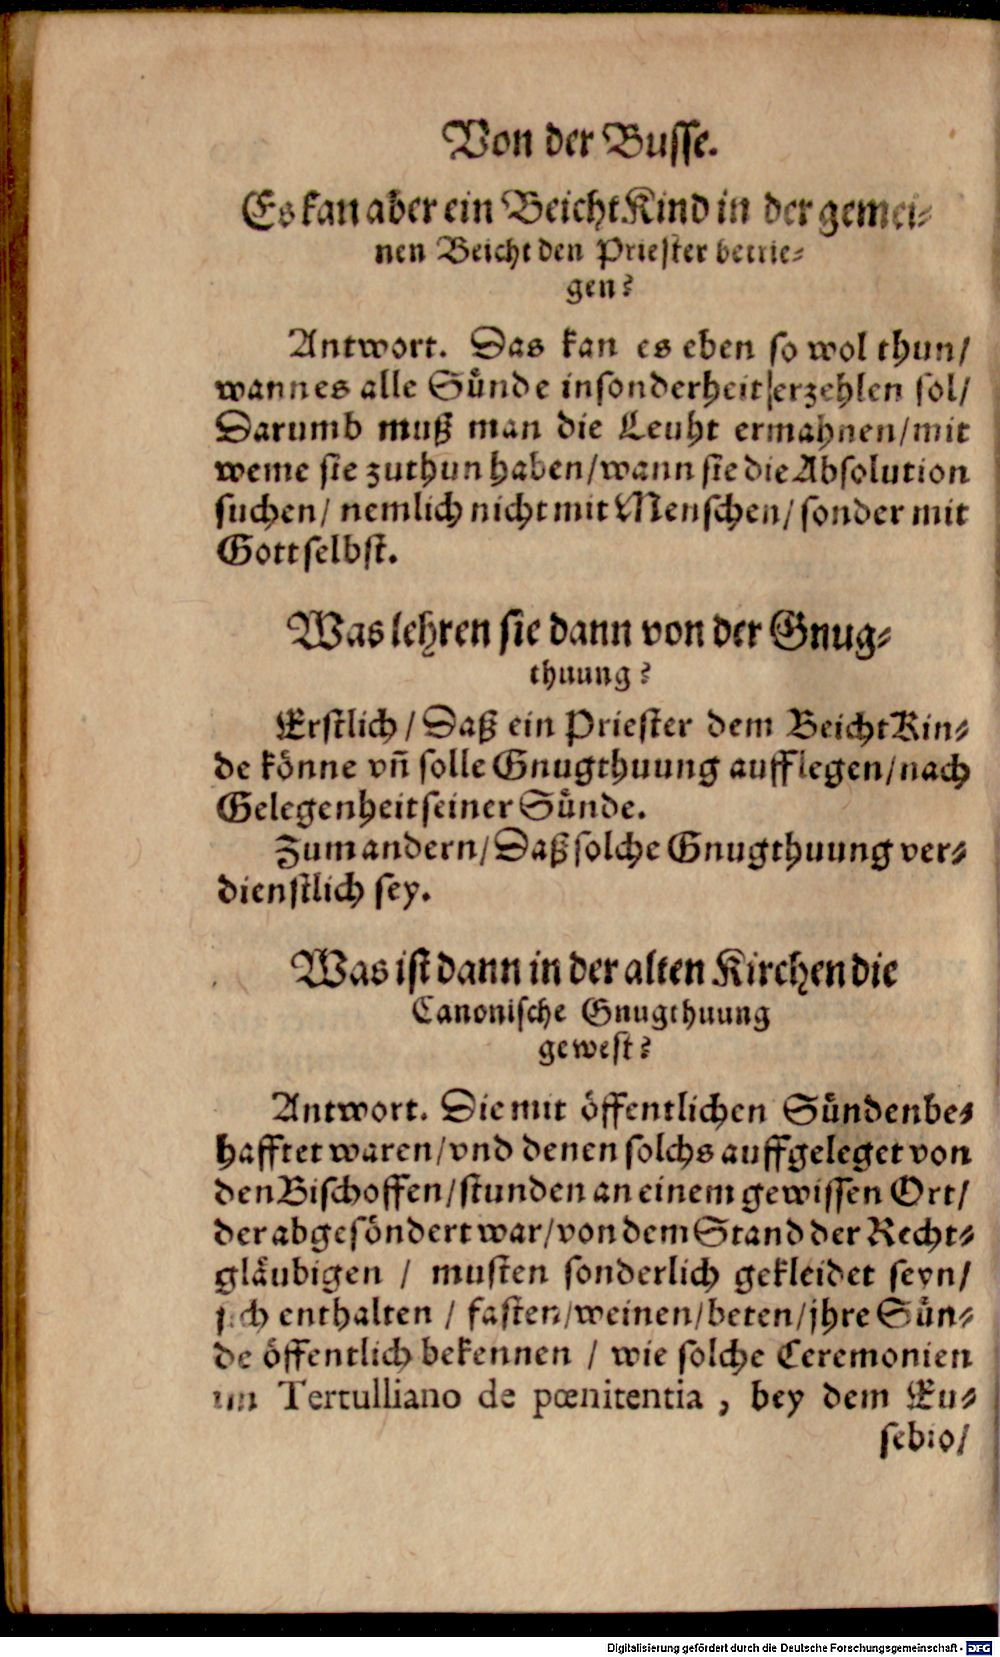 Von der Busse.
Es kan aber ein Beicht Kind in der gemei⸗
nen Beicht den Priester betrie⸗
gen?
Antwort. Das kan es eben so wol thun/
wann es alle Sünde insonderheit erzehlen sol/
Darumb muß man die Leuht ermahnen/mit
weme sie zuthun haben/wann sie die Absolution
suchen/ nemlich nicht mit Menschen/ sonder mit
Gott selbst.
Was lehren sie dann von der Gnug⸗
thuung?
Erstlich / Daß ein Priester dem BeichtKin⸗
de könne vñ solle Gnugthuung aufflegen/nach
Gelegenheit seiner Sünde.
Zum andern/ Daß solche Gnugthuung ver⸗
dienstlich sey.
Was ist dann in der alten Kirchen die
Canonische Gnugthuung
gewest?
Antwort. Die mit öffentlichen Sünden be⸗
hafftet waren/vnd denen solchs auffgeleget von
den Bischoffen/stunden an einem gewissen Ort/
der abgesöndert war/von dem Stand der Recht⸗
gläubigen / musten sonderlich gekleidet seyn/
sich enthalten / fasten/weinen/beten/jhre Sün⸗
de öffentlich bekennen / wie solche Ceremonien
im Tertulliano de pœnitentia , bey dem Eu⸗
sebio/
Digitalisierung gefördert durch die Deutsche Forschungsgemeinschaft - DFG